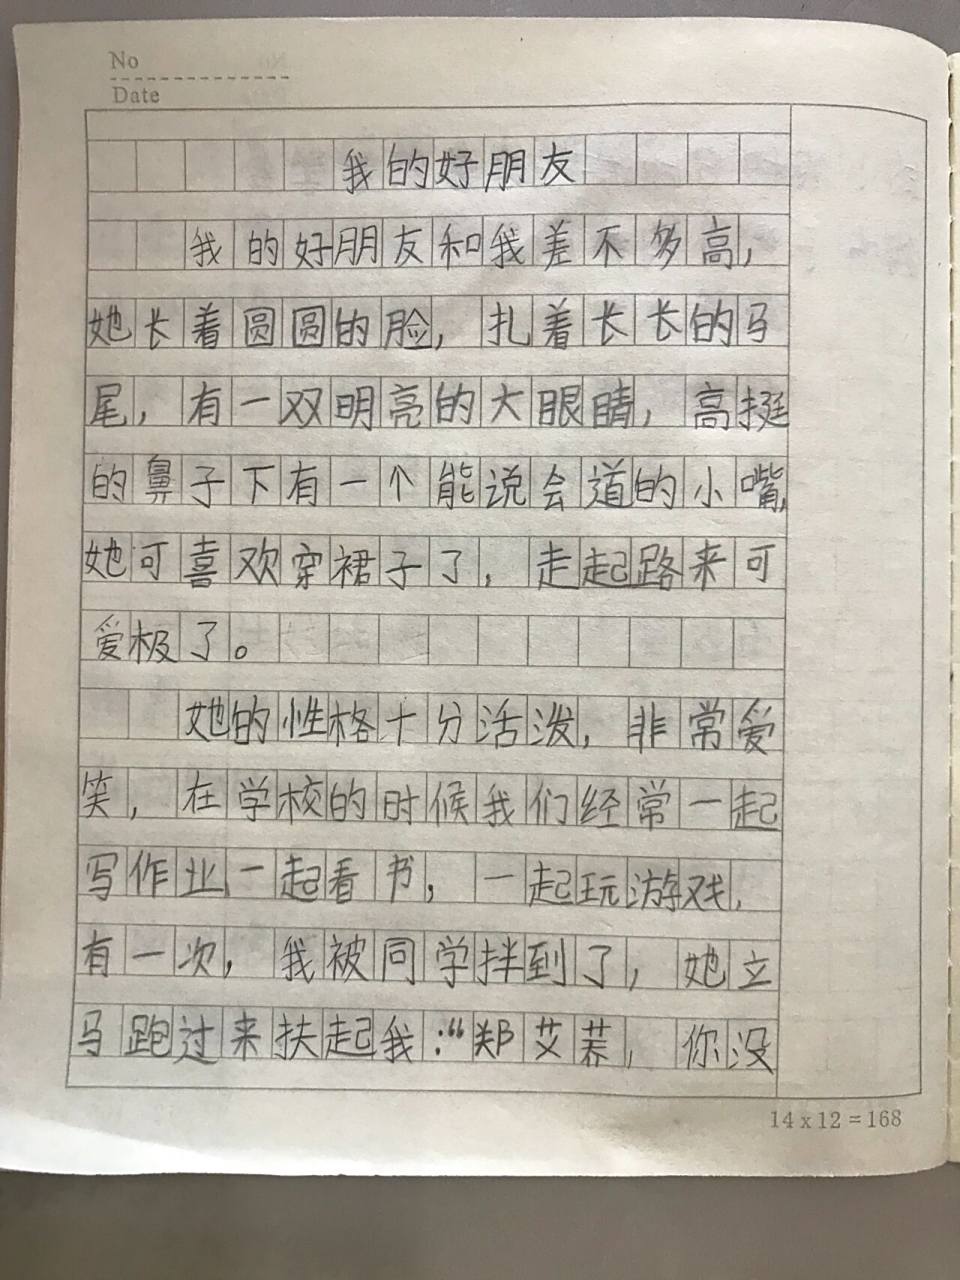 No
Date
我的好朋友
我的好朋友和我差不多高，
她长着圆圆的脸，扎着长长的马
尾，有一双明亮的大眼睛，高挺
的鼻子下有一个能说会道的小嘴，
她可喜欢穿裙子了，走起路来可
爱极了。
她的性格十分活泼，非常爱
笑，在学校的时候我们经常一起
写作业一起看书，一起玩游戏，
有一次，我被同学拌到了，她立
马跑过来扶起我：“郑艾荞，你没
14 x 12 = 168